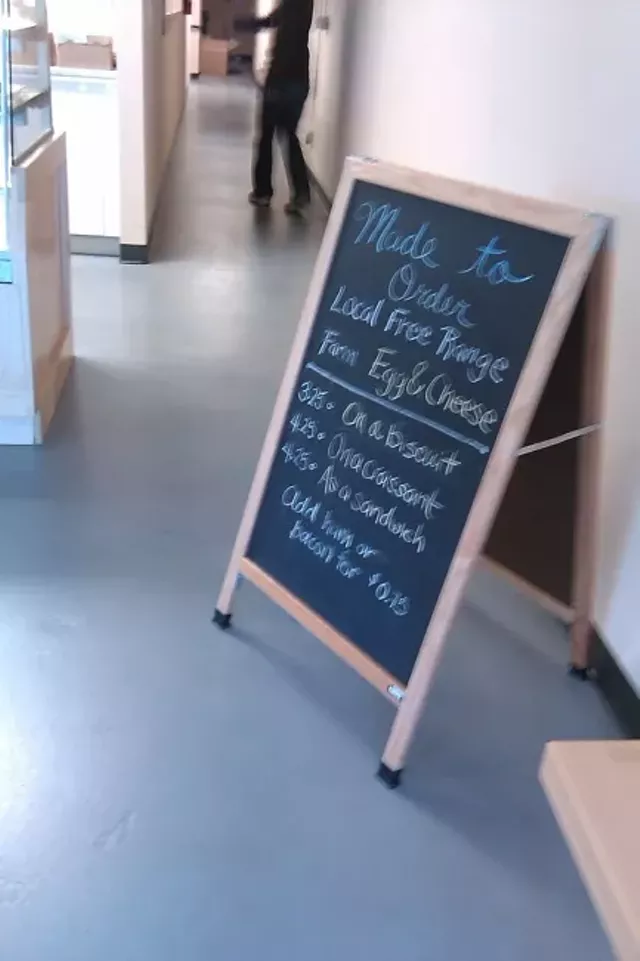 Made to
Order
Local Free Range
Farm Egg & Cheese
3.25 On a biscuit
4.25 On a croissant
4.75 As a sandwich
add ham or
bacon for $0.75